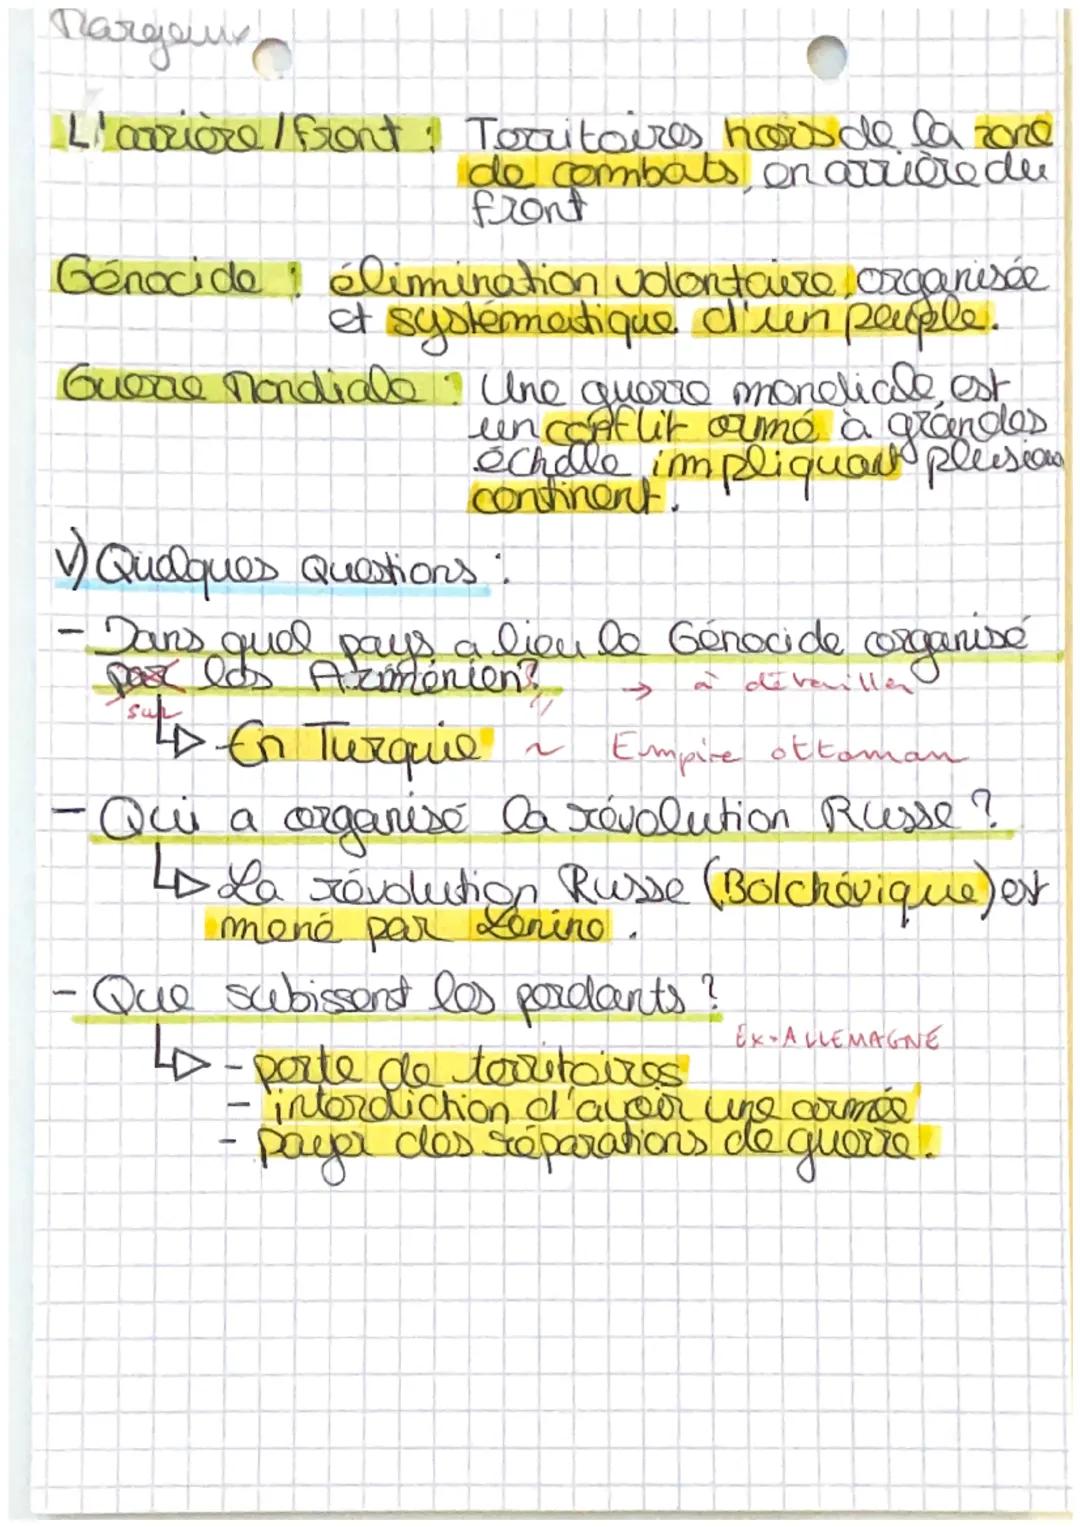 L'arrière / front : Territoires hors de la zone
de combats, en arrière du
front
Génocide : élimination volontaire, organisée
et systématique d'un peuple.
Guerre Mondiale : Une guerre mondiale, est
un conflit armé à grandes
échelle impliquant plusieurs
continent.
V) Quelques Questions :
- Dans quel pays a lieu le Génocide organisé
par les Arménien ? → à détailler
sur
↳ En Turquie ~ Empire ottoman
- Qui a organisé la révolution Russe ?
↳ La révolution Russe (Bolchévique) est
mené par Lénine.
- Que subissent les perdants ?
EX-ALLEMAGNE
↳ - perte de territoires
- interdiction d'avoir une armée
- payer des réparations de guerre.